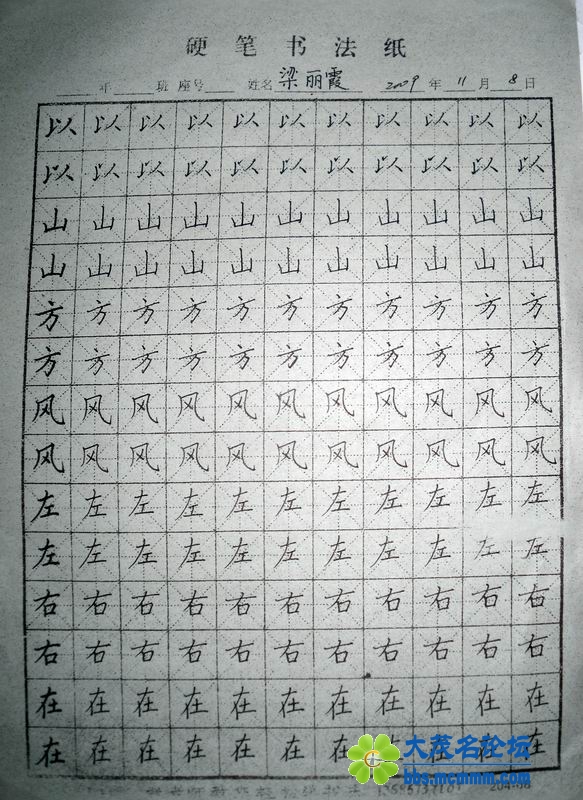 硬笔书法纸
年 班 座号 姓名 梁丽霞 2009 年 11 月 8 日
以 以 以 以 以 以 以 以 以 以 以
以 以 以 以 以 以 以 以 以 以 以
山 山 山 山 山 山 山 山 山 山 山
山 山 山 山 山 山 山 山 山 山 山
方 方 方 方 方 方 方 方 方 方 方
方 方 方 方 方 方 方 方 方 方 方
风 风 风 风 风 风 风 风 风 风 风
风 风 风 风 风 风 风 风 风 风 风
左 左 左 左 左 左 左 左 左 左 左
左 左 左 左 左 左 左 左 左 左 左
右 右 右 右 右 右 右 右 右 右 右
右 右 右 右 右 右 右 右 右 右 右
在 在 在 在 在 在 在 在 在 在 在
在 在 在 在 在 在 在 在 在 在 在
大茂名论坛
bbs.mcmmm.com